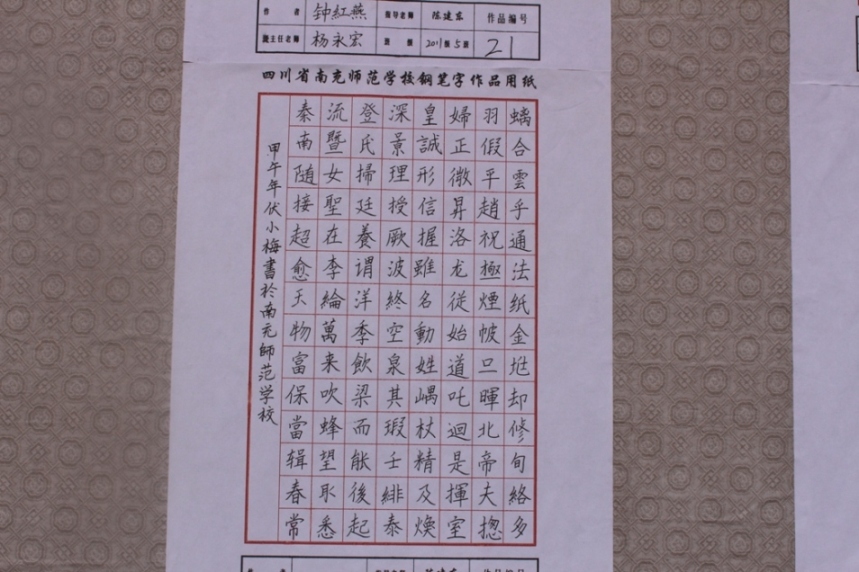 作者 钟紅燕 指导老师 陈建东 作品编号
班主任老师 杨永宏 班级 2011级5班 21
四川省南充师范学校钢笔字作品用纸
螭合雲乎通法纸金却修旬絡多
羽假平趙祝極煙帔暉北帝夫揔
婦正微昇洛龙從始道吒迴是揮室
皇誠形信握雖名動姓嵎杖精及煥
深景理授厥波終空泉其瑕壬緋泰
登氏掃廷養谓洋季飲梁而能後起
流暨女聖在李綸萬来吹蜂望耴悉
秦南随接超愈天物富保當辑春常
甲午年伏小梅書於南充師范学校
作品编号